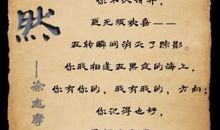 然
——徐志摩
你不必讶异，
更无须欢喜——
在转瞬间消灭了踪影。
你我相逢在黑夜的海上，
你有你的，我有我的，方向；
你记得也好，